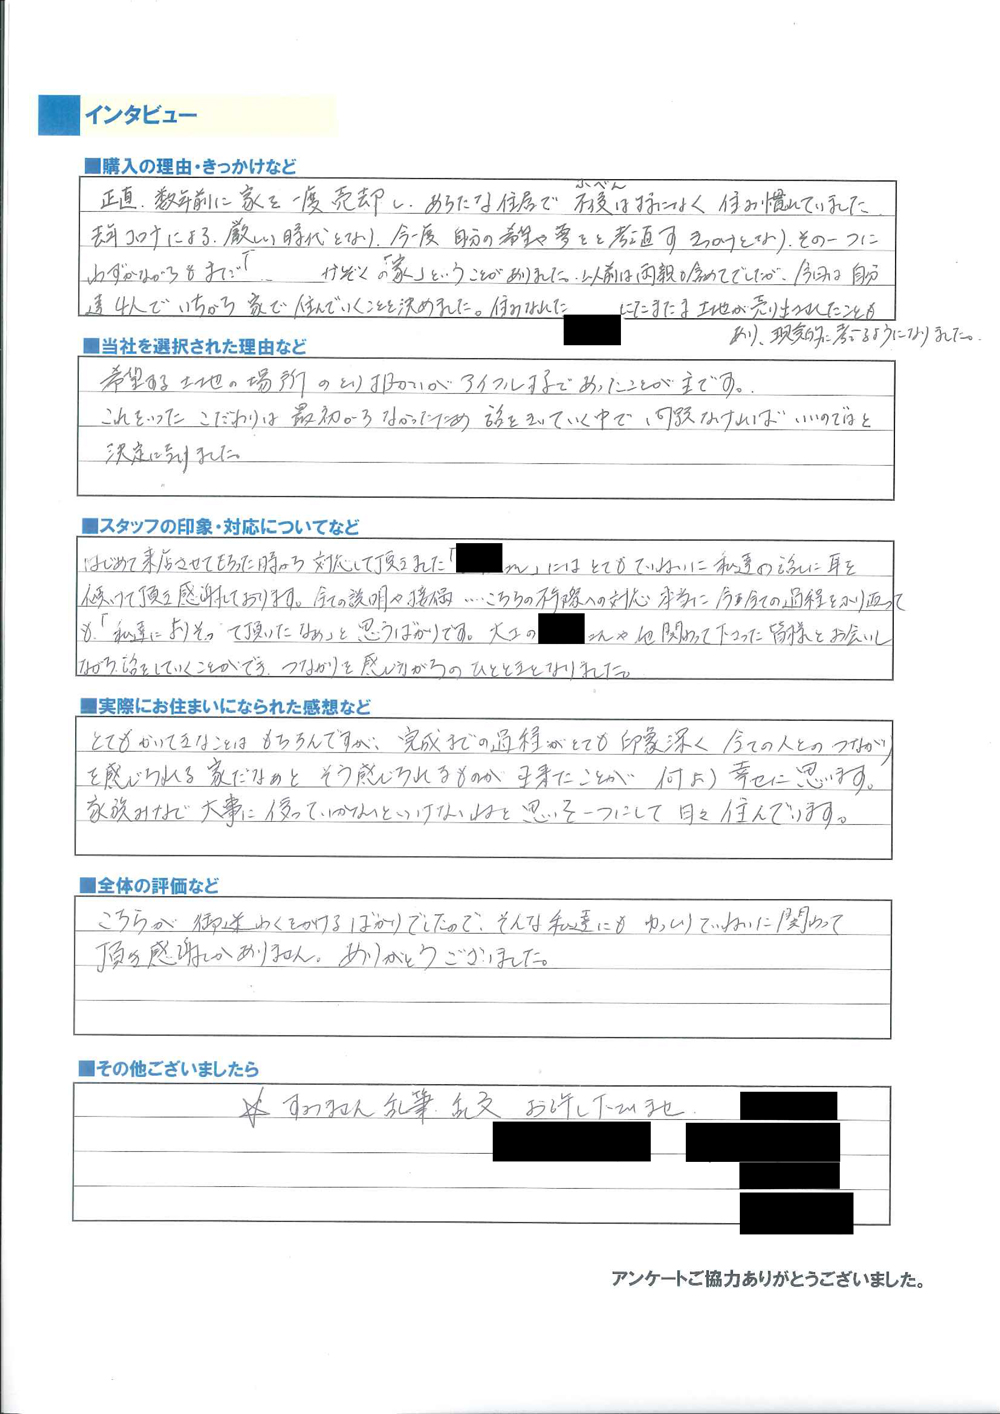 インタビュー
■購入の理由・きっかけなど
ふべん
正直、数年前に家を一度売却し、あらたな住居で不便はすになく住み慣れていました。
去年コロナによる、厳しい時代となり、今一度自分の希望や夢をと考え直すきっかけとなり、その一つに
わずかながらもまだ「 かぞくの「家」ということがありました。以前は両親も含めてでしたが、今回は自分
達4人でいちから家で住んでいくことを決めました。住みなれた にたまたま土地が売り出されたことも
あり、現実的に考えるようになりました。
■当社を選択された理由など
希望する土地の場所のとり扱いがアイフルさまであったことが主です。
これといったこだわりは最初からなかったため話をきいていく中で問題なければいいのではと
決定に至りました。
■スタッフの印象・対応についてなど
はじめて来店させてもらった時から対応して頂きました「 さん」にはとてもていねいに私達の話に耳を
傾けて頂き感謝しております。全ての説明や接偶…こちらの不手際への対応 本当に今も全ての過程をふり返って
も、「私達によりそって頂いたなぁ」と思うばかりです。大工の さんや他関わって下さった皆様とお会いし
ながら話をしていくことができ、つながりを感じながらのひとときとなりました。
■実際にお住まいになられた感想など
とてもかいてきなことはもちろんですが、完成までの過程がとても印象深く 全ての人とのつながり
を感じられる家だなぁと そう感じられるものが出来たことが 何より幸せに思います。
家族みなで大事に使っていかないといけないねと思いを一つにして日々住んでいます。
■全体の評価など
こちらが御迷わくをかけるばかりでしたので、そんな私達にもゆっくりていねいに関わって
頂き感謝しかありません。ありがとうございました。
■その他ございましたら
☆ すみません乱筆、乱文 お許し下さいませ。
アンケートご協力ありがとうございました。